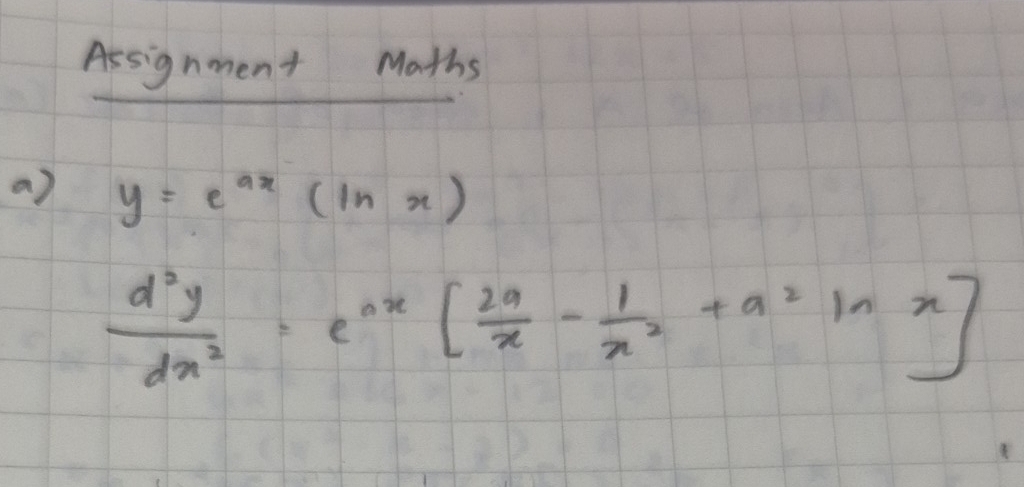 Assignment Maths
a) y = e^{ax} (ln x)
d²y/dx² = e^{ax} [2a/x - 1/x² + a² ln x]